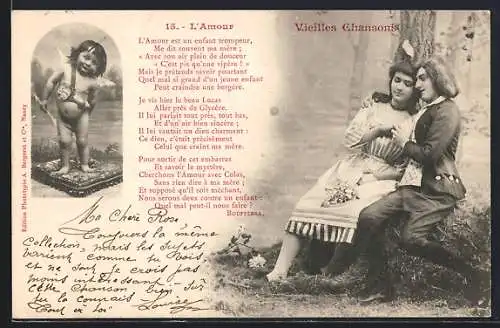 15. - L'Amour
Vieilles Chansons
L'Amour est un enfant trompeur,
Me dit souvent ma mère ;
« Avec son air plein de douceur
« C'est pis qu'une vipère ! »
Mais je prétends savoir pourtant
Quel mal si grand d'un jeune enfant
Peut craindre une bergère.
Je vis hier le beau Lucas
Aller près de Glycère.
Il lui parlait tout près, tout bas,
Et d'un air bien sincère ;
Il lui vantait un dieu charmant :
Ce dieu, c'était précisément
Celui que craint ma mère.
Pour sortir de cet embarras
Et savoir le mystère,
Cherchons l'Amour avec Colas,
Sans rien dire à ma mère ;
Et supposé qu'il soit méchant,
Nous serons deux contre un enfant :
Quel mal peut-il nous faire ?
BOUFFLERS.
Edition Phototypie A. Bergeret et Cie, Nancy
Ma Chère Rose
Toujours la même
Collection, mais les Sujets
varient comme tu vois
et ne sont je crois pas
moins intéressant.
Cette Chanson bien sûr
tu la connais
Tout à toi Louise